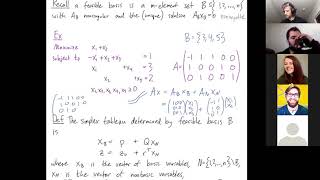 Recall a feasible basis is a m-element set B ⊆ {1,2,…,n}
with A_B nonsingular and the (unique) solution A_B x_B = b nonnegative
Ex
Minimize x₁ + x₂
B = {3,4,5}
subject to -x₁ + x₂ + x₃ = 1
x₁ + x₄ = 3
x₂ + x₅ = 2
x₁, x₂, x₃, x₄, x₅ ≥ 0
Def The simplex tableau determined by feasible basis B
is
x_B = p + Q x_N
z = z₀ + rᵀ x_N
where x_B is the vector of basic variables, N = {1,2,…,n}\B,
x_N is the vector of nonbasic variables,